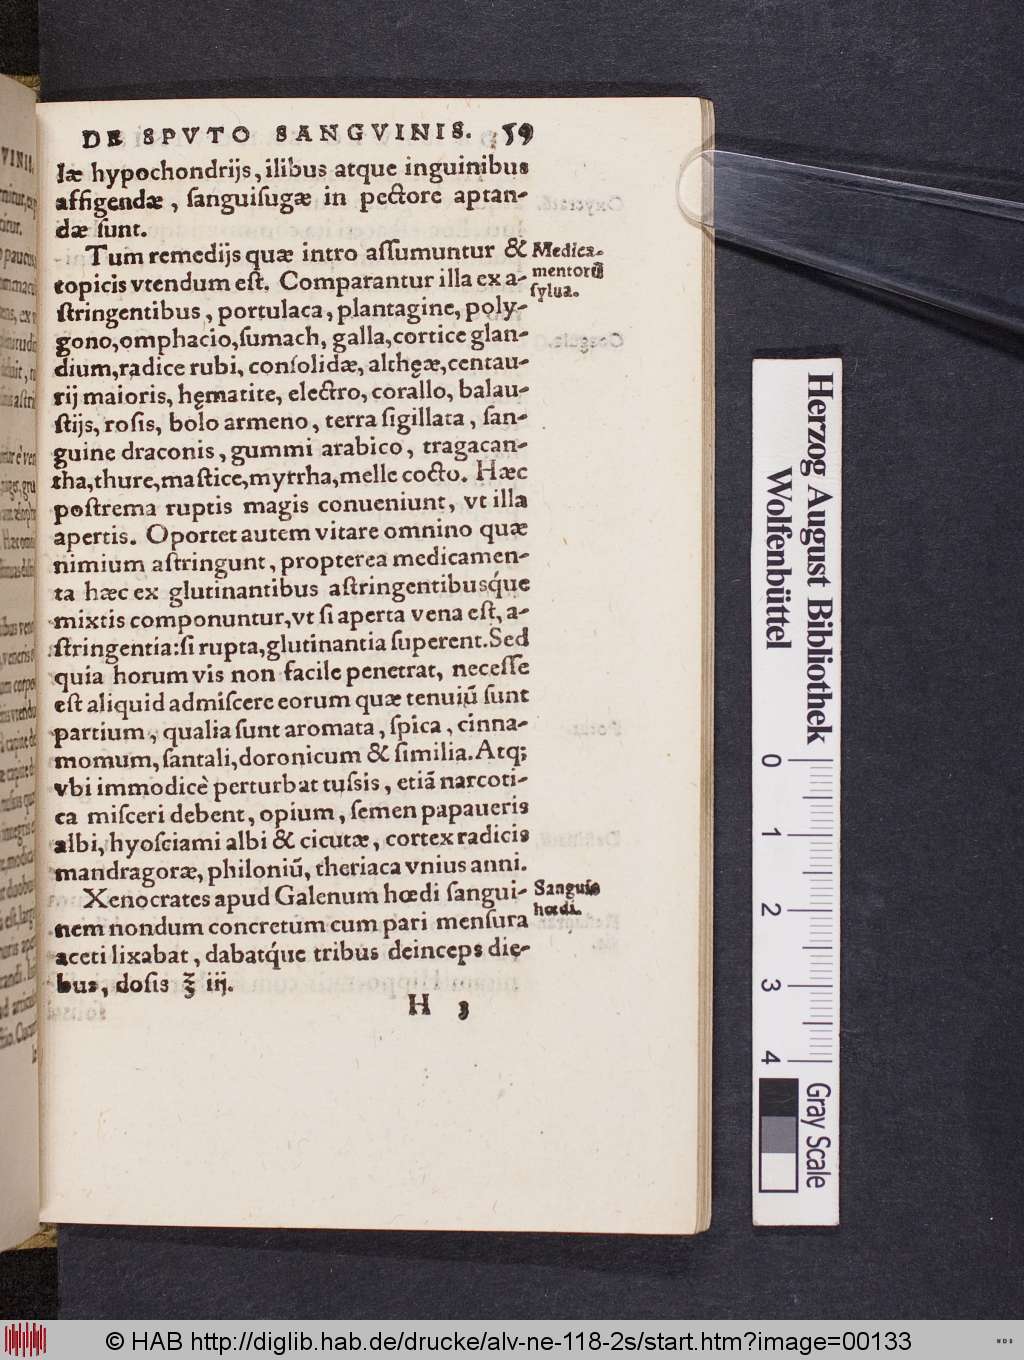 DE SPVTO SANGVINIS. 59
læ hypochondrijs, ilibus atque inguinibus
affigendæ, ſanguiſugæ in pectore aptan-
dæ ſunt.
Tum remedijs quæ intro aſſumuntur &
topicis vtendum eſt. Comparantur illa ex a-
ſtringentibus, portulaca, plantagine, poly-
gono, omphacio, ſumach, galla, cortice glan-
dium, radice rubi, conſolidæ, altheæ, centau-
rij maioris, hęmatite, electro, corallo, balau-
ſtijs, roſis, bolo armeno, terra ſigillata, ſan-
guine draconis, gummi arabico, tragacan-
tha, thure, maſtice, myrrha, melle cocto. Hæc
poſtrema ruptis magis conueniunt, vt illa
apertis. Oportet autem vitare omnino quæ
nimium aſtringunt, propterea medicamen-
ta hæc ex glutinantibus aſtringentibusq́ue
mixtis componuntur, vt ſi aperta vena eſt, a-
ſtringentia: ſi rupta, glutinantia ſuperent. Sed
quia horum vis non facile penetrat, neceſſe
eſt aliquid admiſcere eorum quæ tenuiũ ſunt
partium, qualia ſunt aromata, ſpica, cinna-
momum, ſantali, doronicum & ſimilia. Atq;
vbi immodicè perturbat tuſsis, etiã narcoti-
ca miſceri debent, opium, ſemen papaueris
albi, hyoſciami albi & cicutæ, cortex radicis
mandragoræ, philoniũ, theriaca vnius anni.
Xenocrates apud Galenum hœdi ſangui-
nem nondum concretum cum pari menſura
aceti lixabat, dabatq́ue tribus deinceps die-
bus, doſis ℥ iij.
H 3
Medica-
mentorũ
ſylua.
Sanguis
hœdi.
Herzog August Bibliothek
Wolfenbüttel
0 1 2 3 4
Gray Scale
© HAB http://diglib.hab.de/drucke/alv-ne-118-2s/start.htm?image=00133